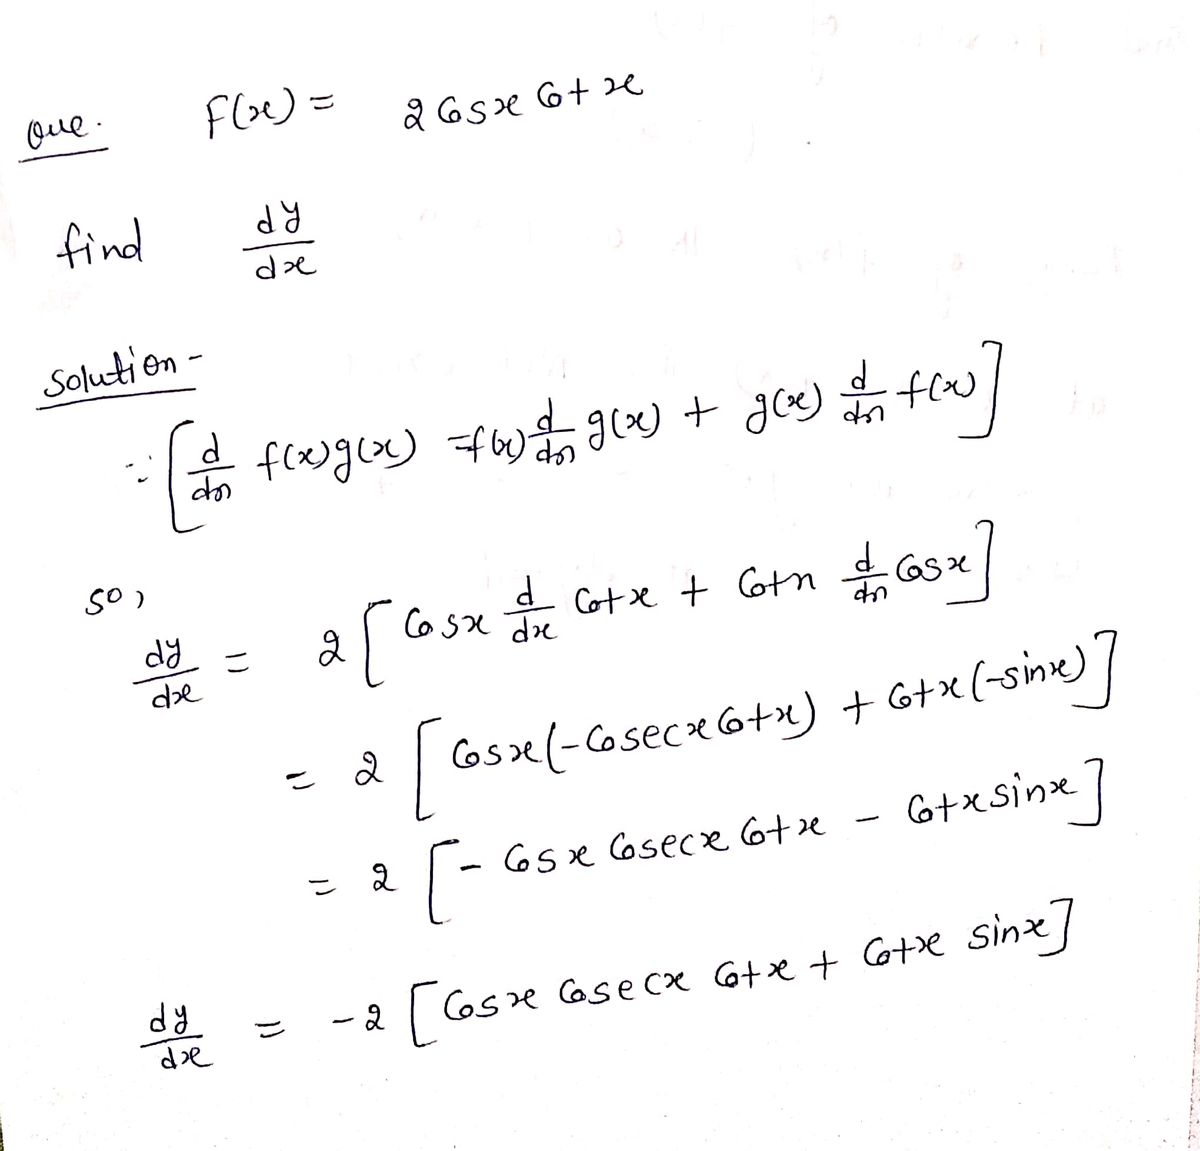 Que. F(x) = 2 Cosx Cotx
find dy/dx
Solution -
∵ [d/dn f(x)g(x) = f(x) d/dn g(x) + g(x) d/dn f(x)]
so,
dy/dx = 2 [Cosx d/dx Cotx + Cotn d/dn Cosx]
= 2 [Cosx(-Cosecx Cotx) + Cotx(-sinx)]
= 2 [- Cosx Cosecx Cotx - Cotx sinx]
dy/dx = -2 [Cosx Cosecx Cotx + Cotx sinx]